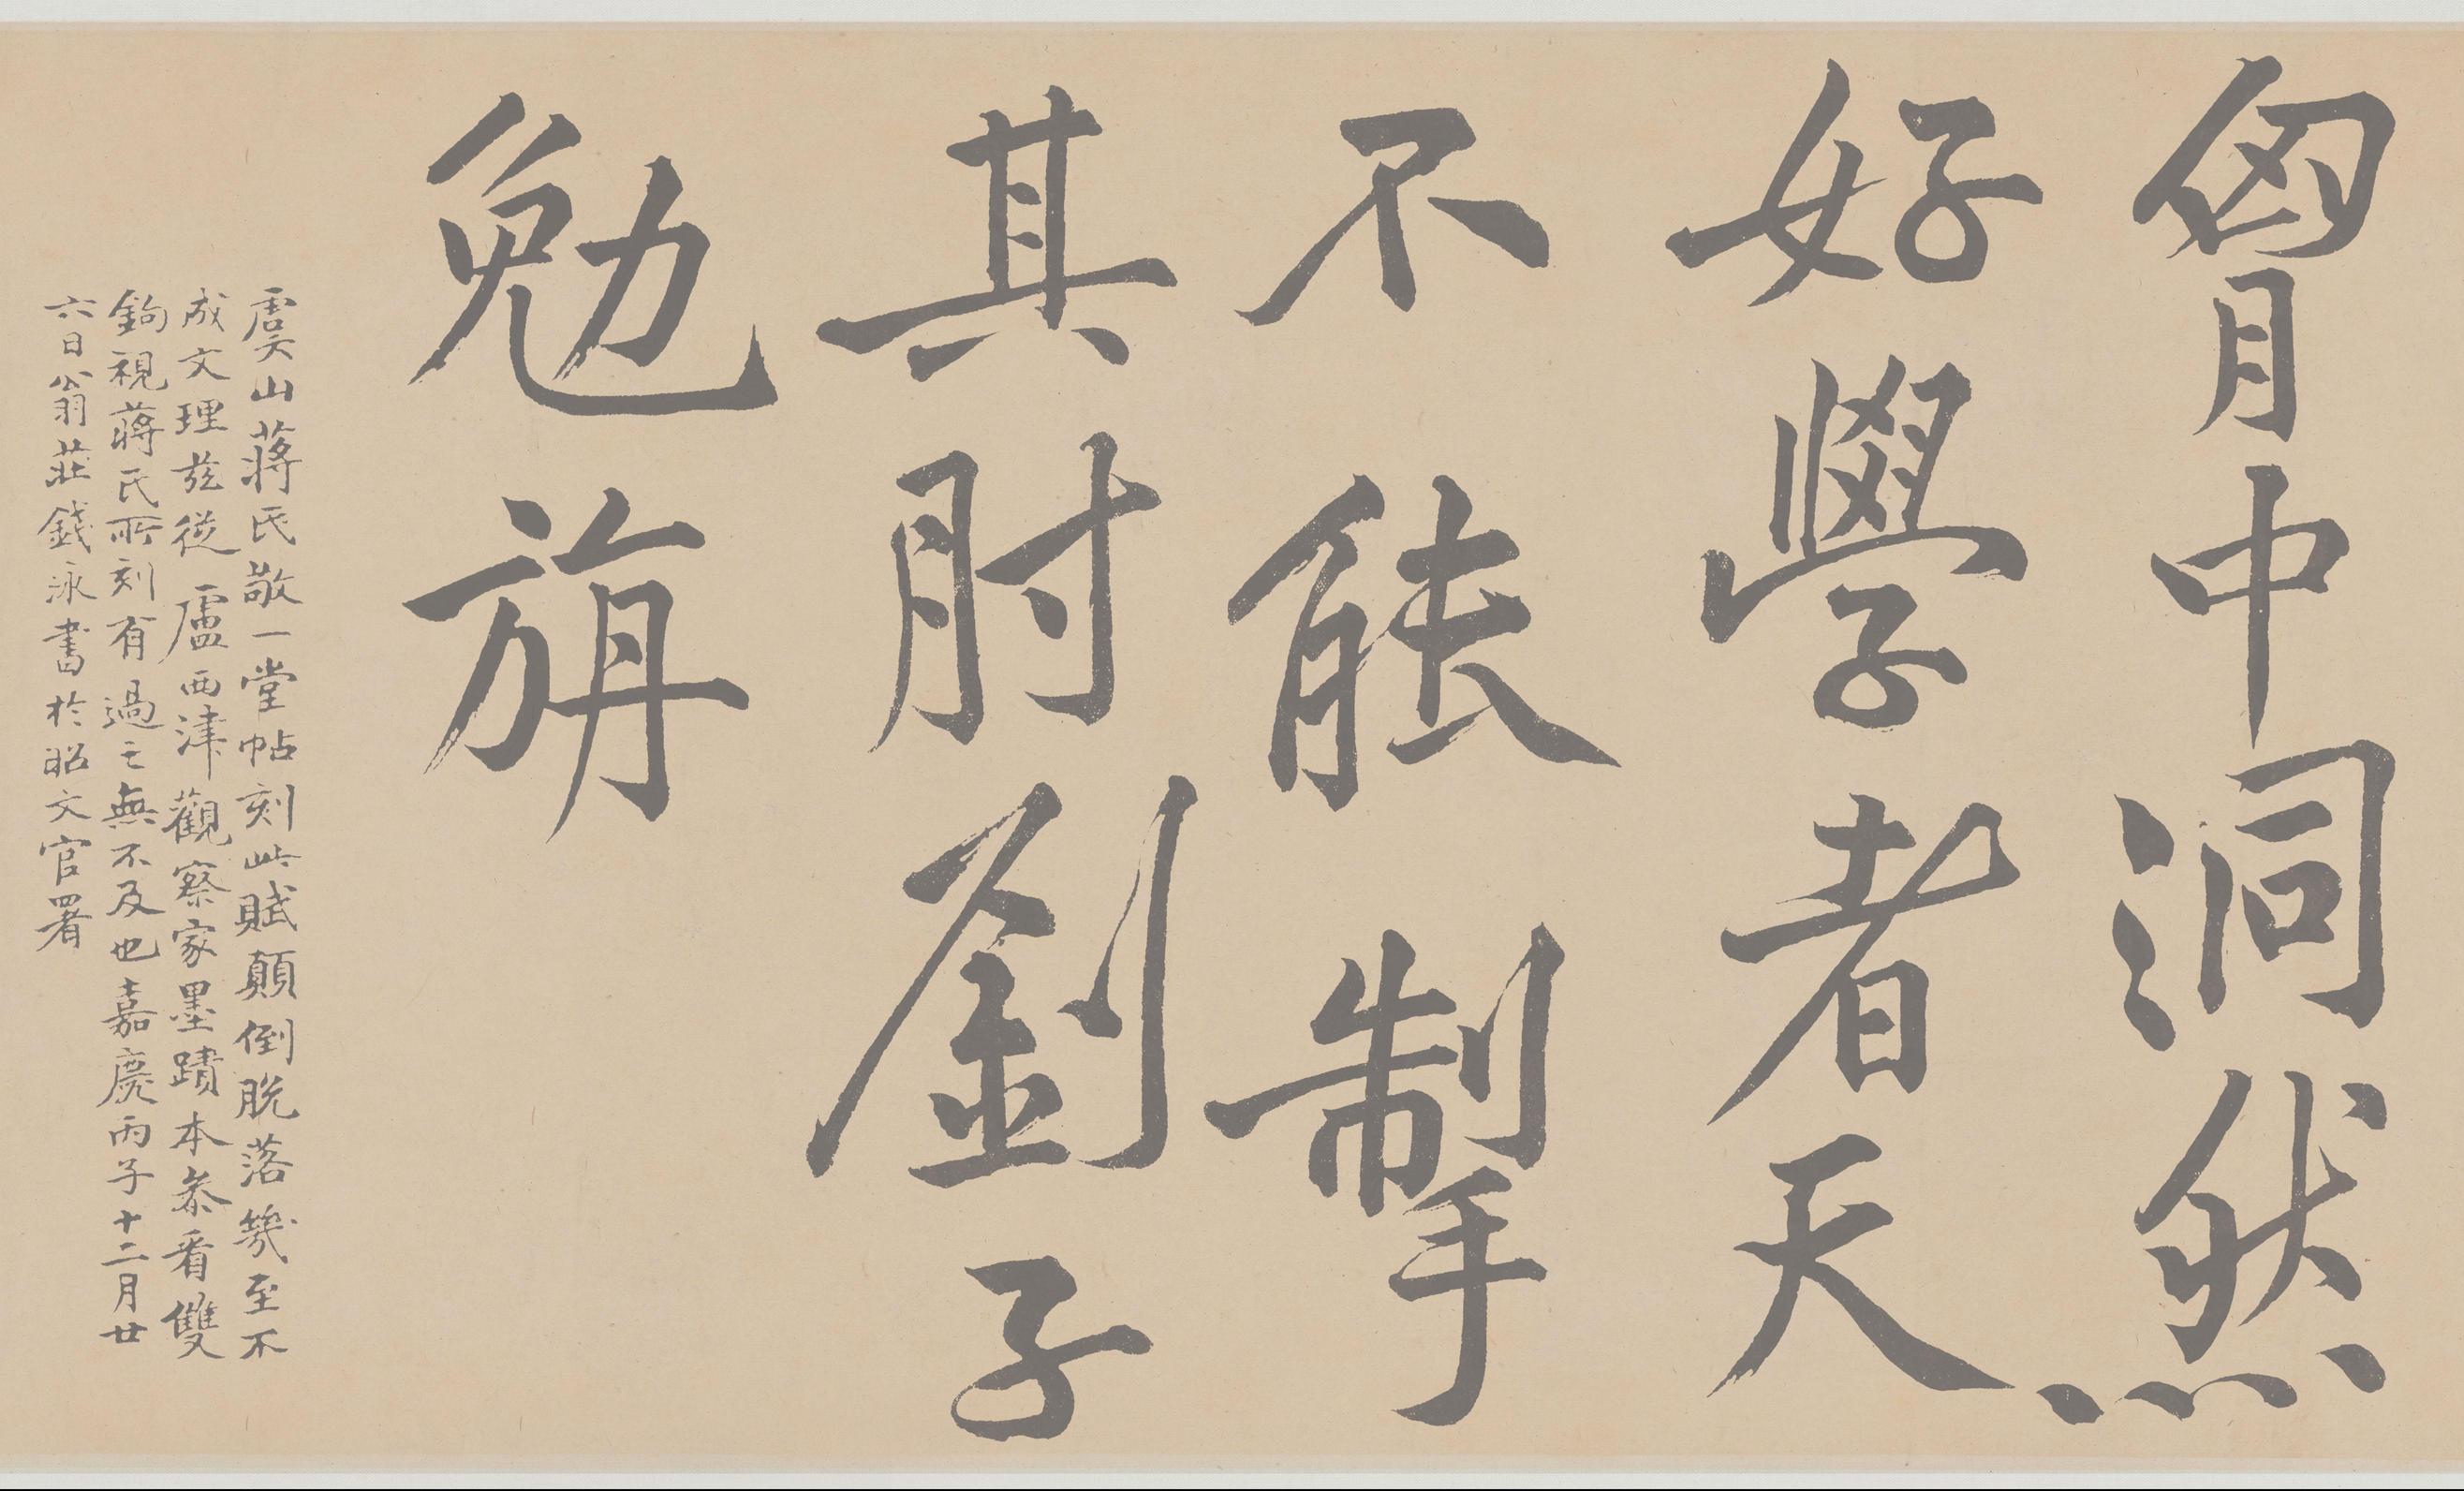 胷中洞然
好學者天
不能掣
其肘劉子
勉旃
虞山蔣氏敬一堂帖刻此賦顛倒脫落幾至不
成文理兹從盧西津觀察家墨蹟本叅看雙
鉤視蔣氏所刻有過之無不及也嘉慶丙子十二月廿
六日翁莊錢泳書於昭文官署